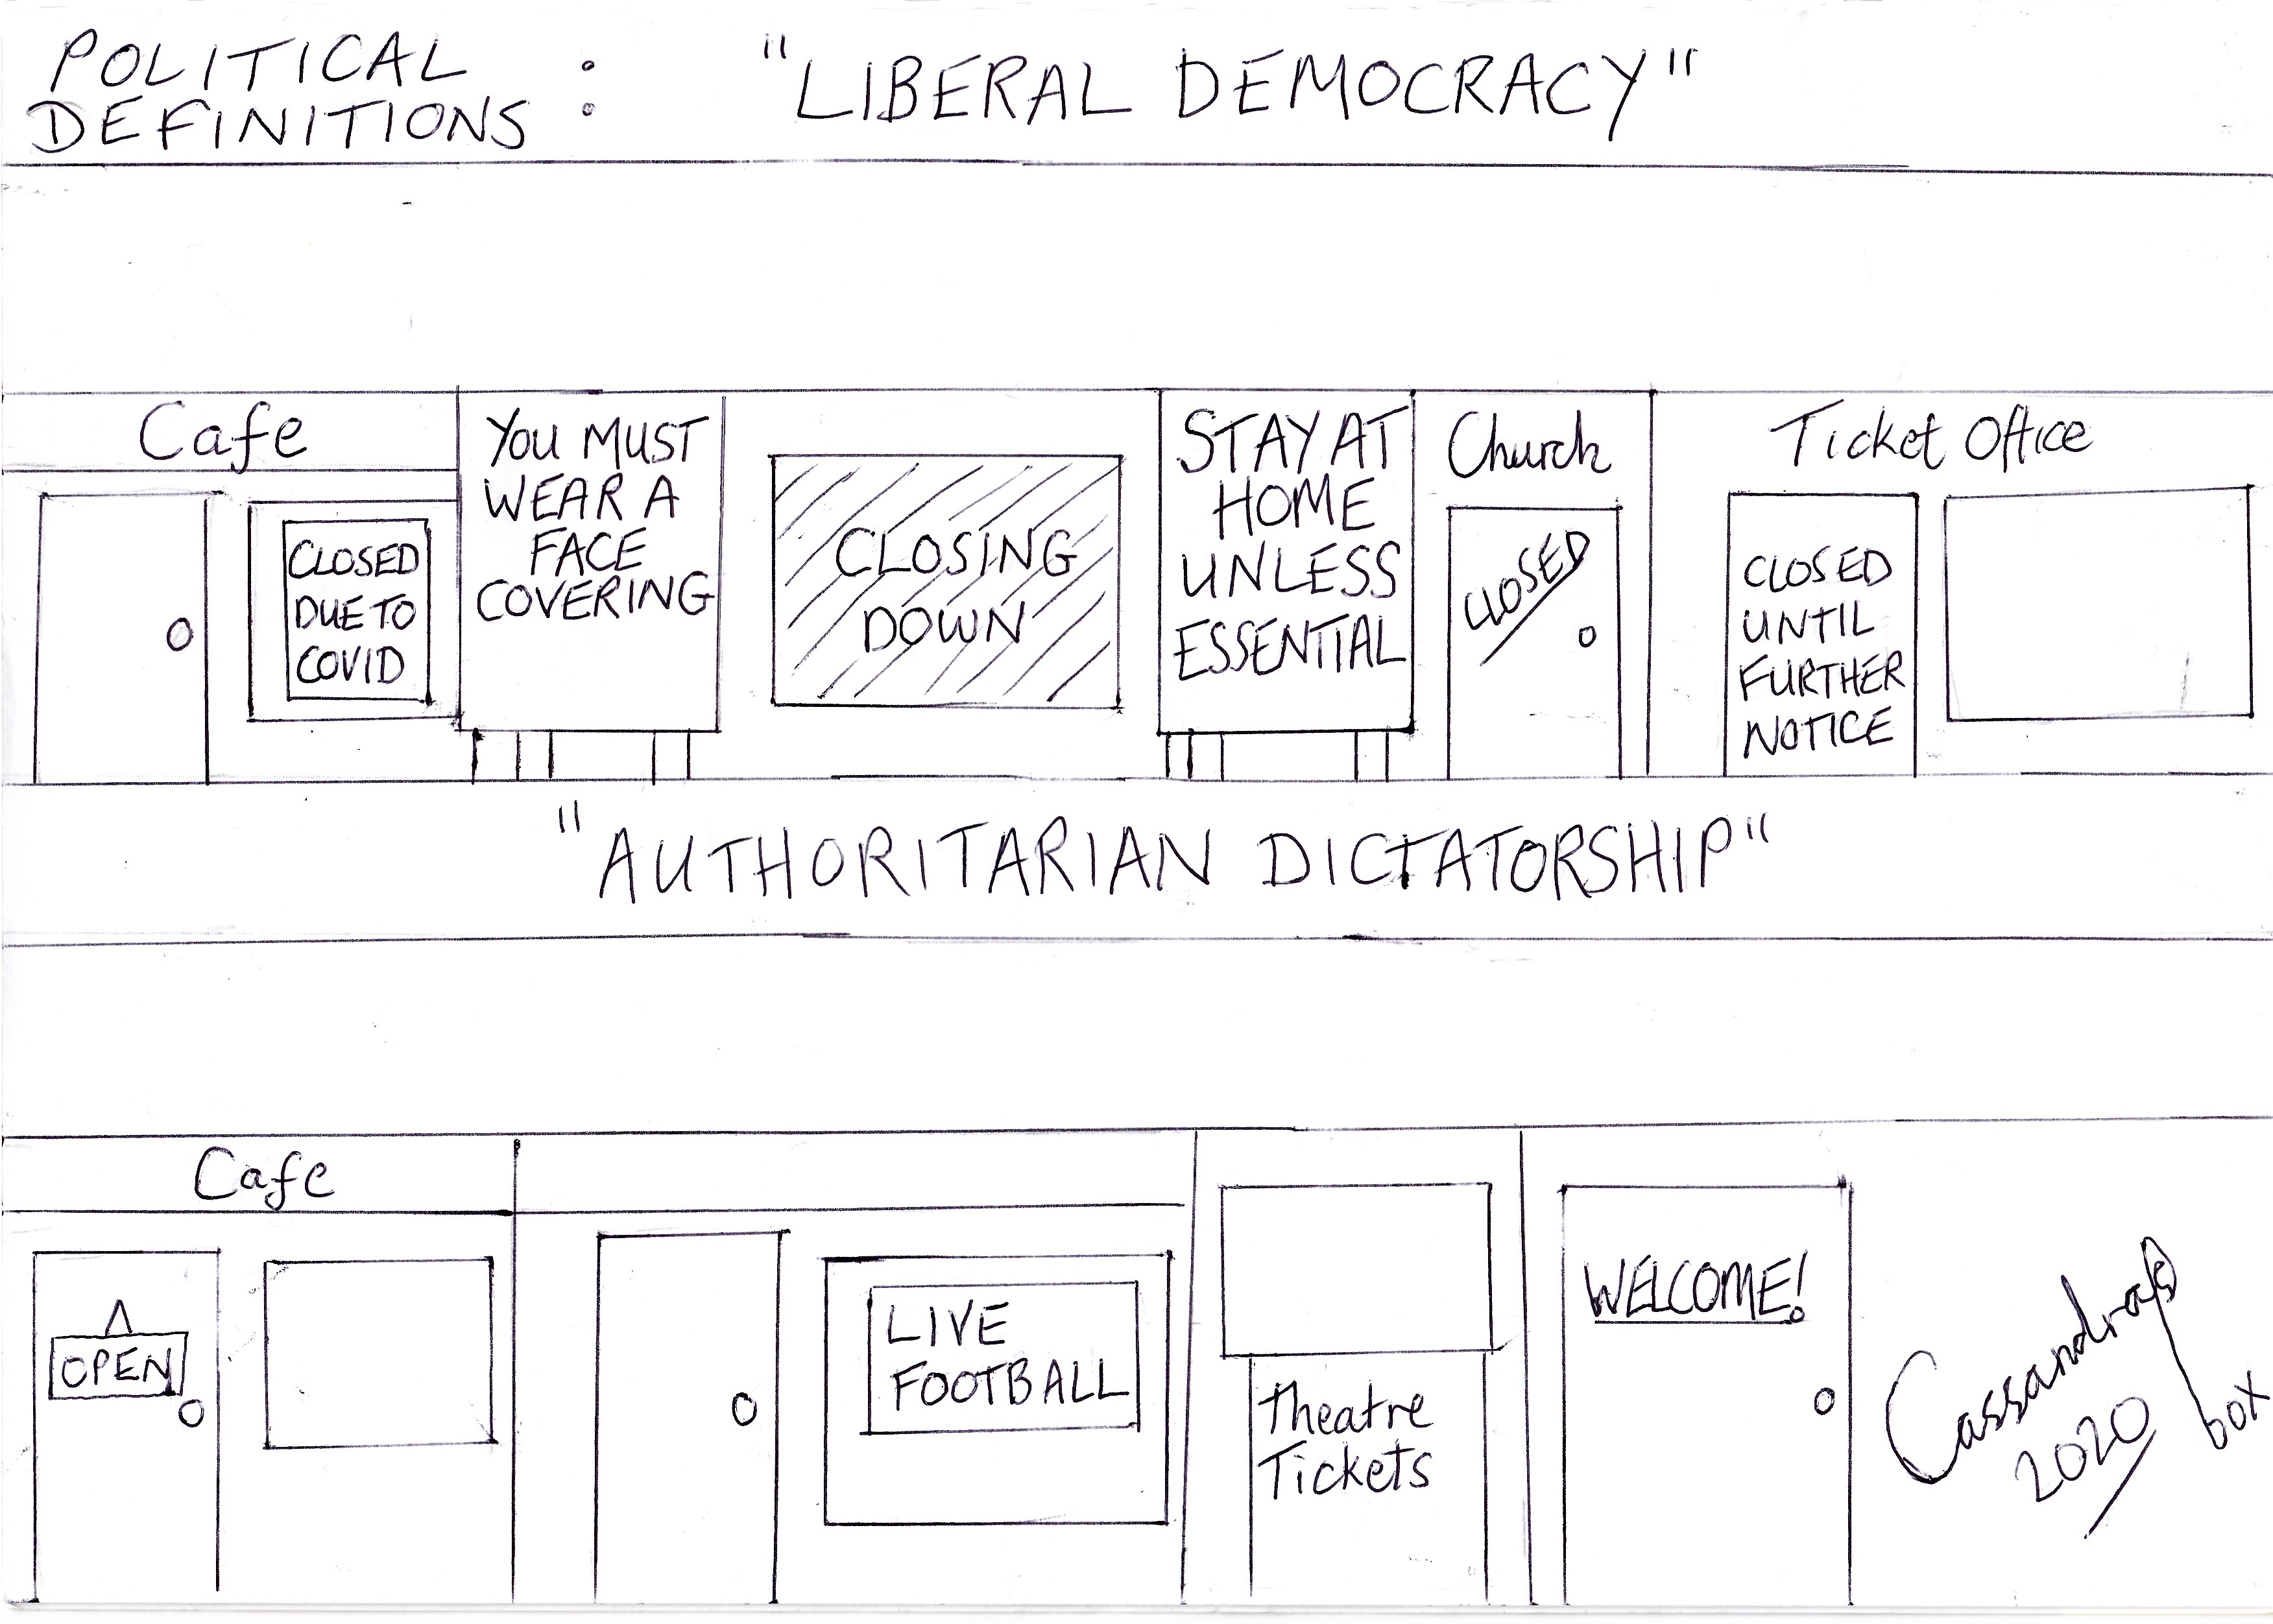 POLITICAL
DEFINITIONS :
"LIBERAL DEMOCRACY"
Cafe
CLOSED
DUE TO
COVID
YOU MUST
WEAR A
FACE
COVERING
CLOSING
DOWN
STAY AT
HOME
UNLESS
ESSENTIAL
Church
CLOSED
Ticket Office
CLOSED
UNTIL
FURTHER
NOTICE
"AUTHORITARIAN DICTATORSHIP"
Cafe
OPEN
LIVE
FOOTBALL
Theatre
Tickets
WELCOME!
Cassandra's
box
2020